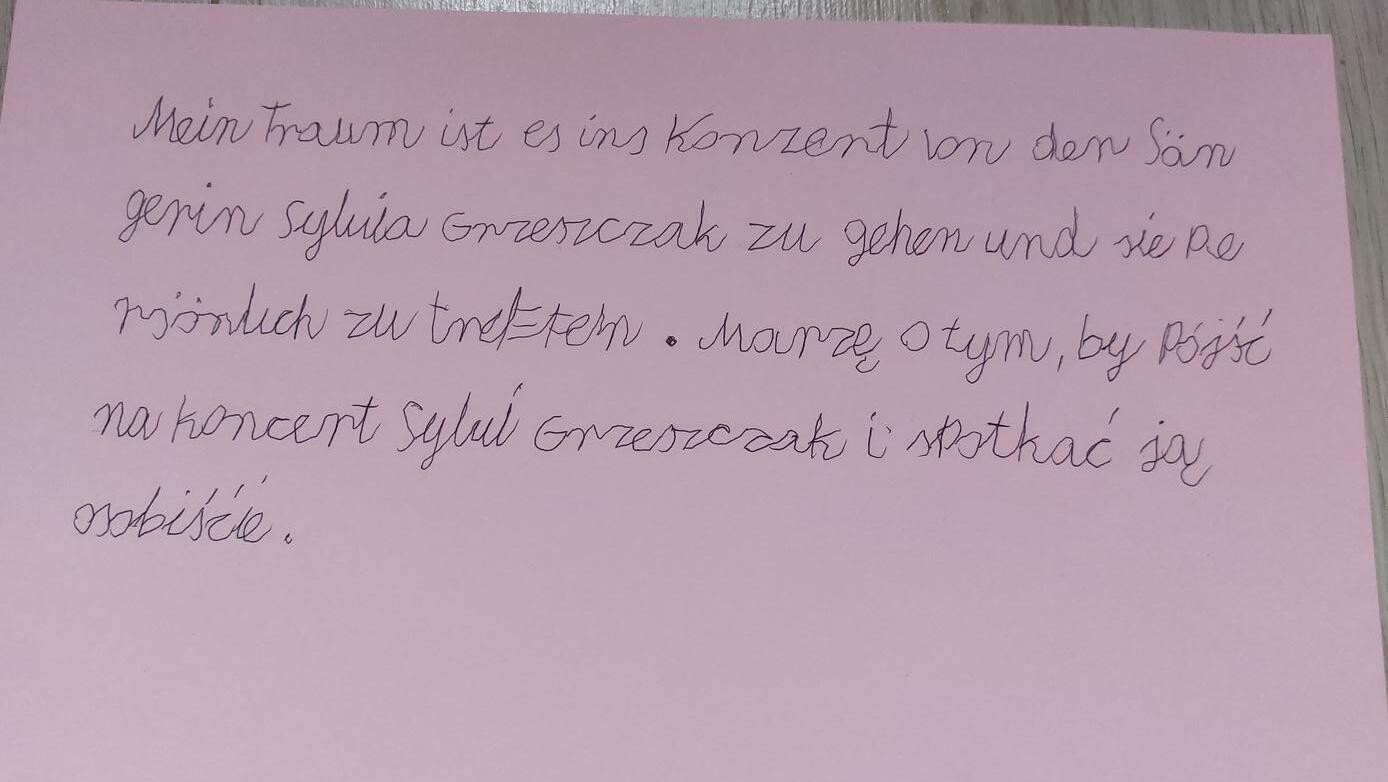 Mein Traum ist es ins Konzert von den Sän
gerin Sylwia Grzeszczak zu gehen und sie Pe
rsönlich zu treffen. Marzę o tym, by Pójść
na koncert Sylwi Grzeszczak i spotkać ją
osobiśćie.